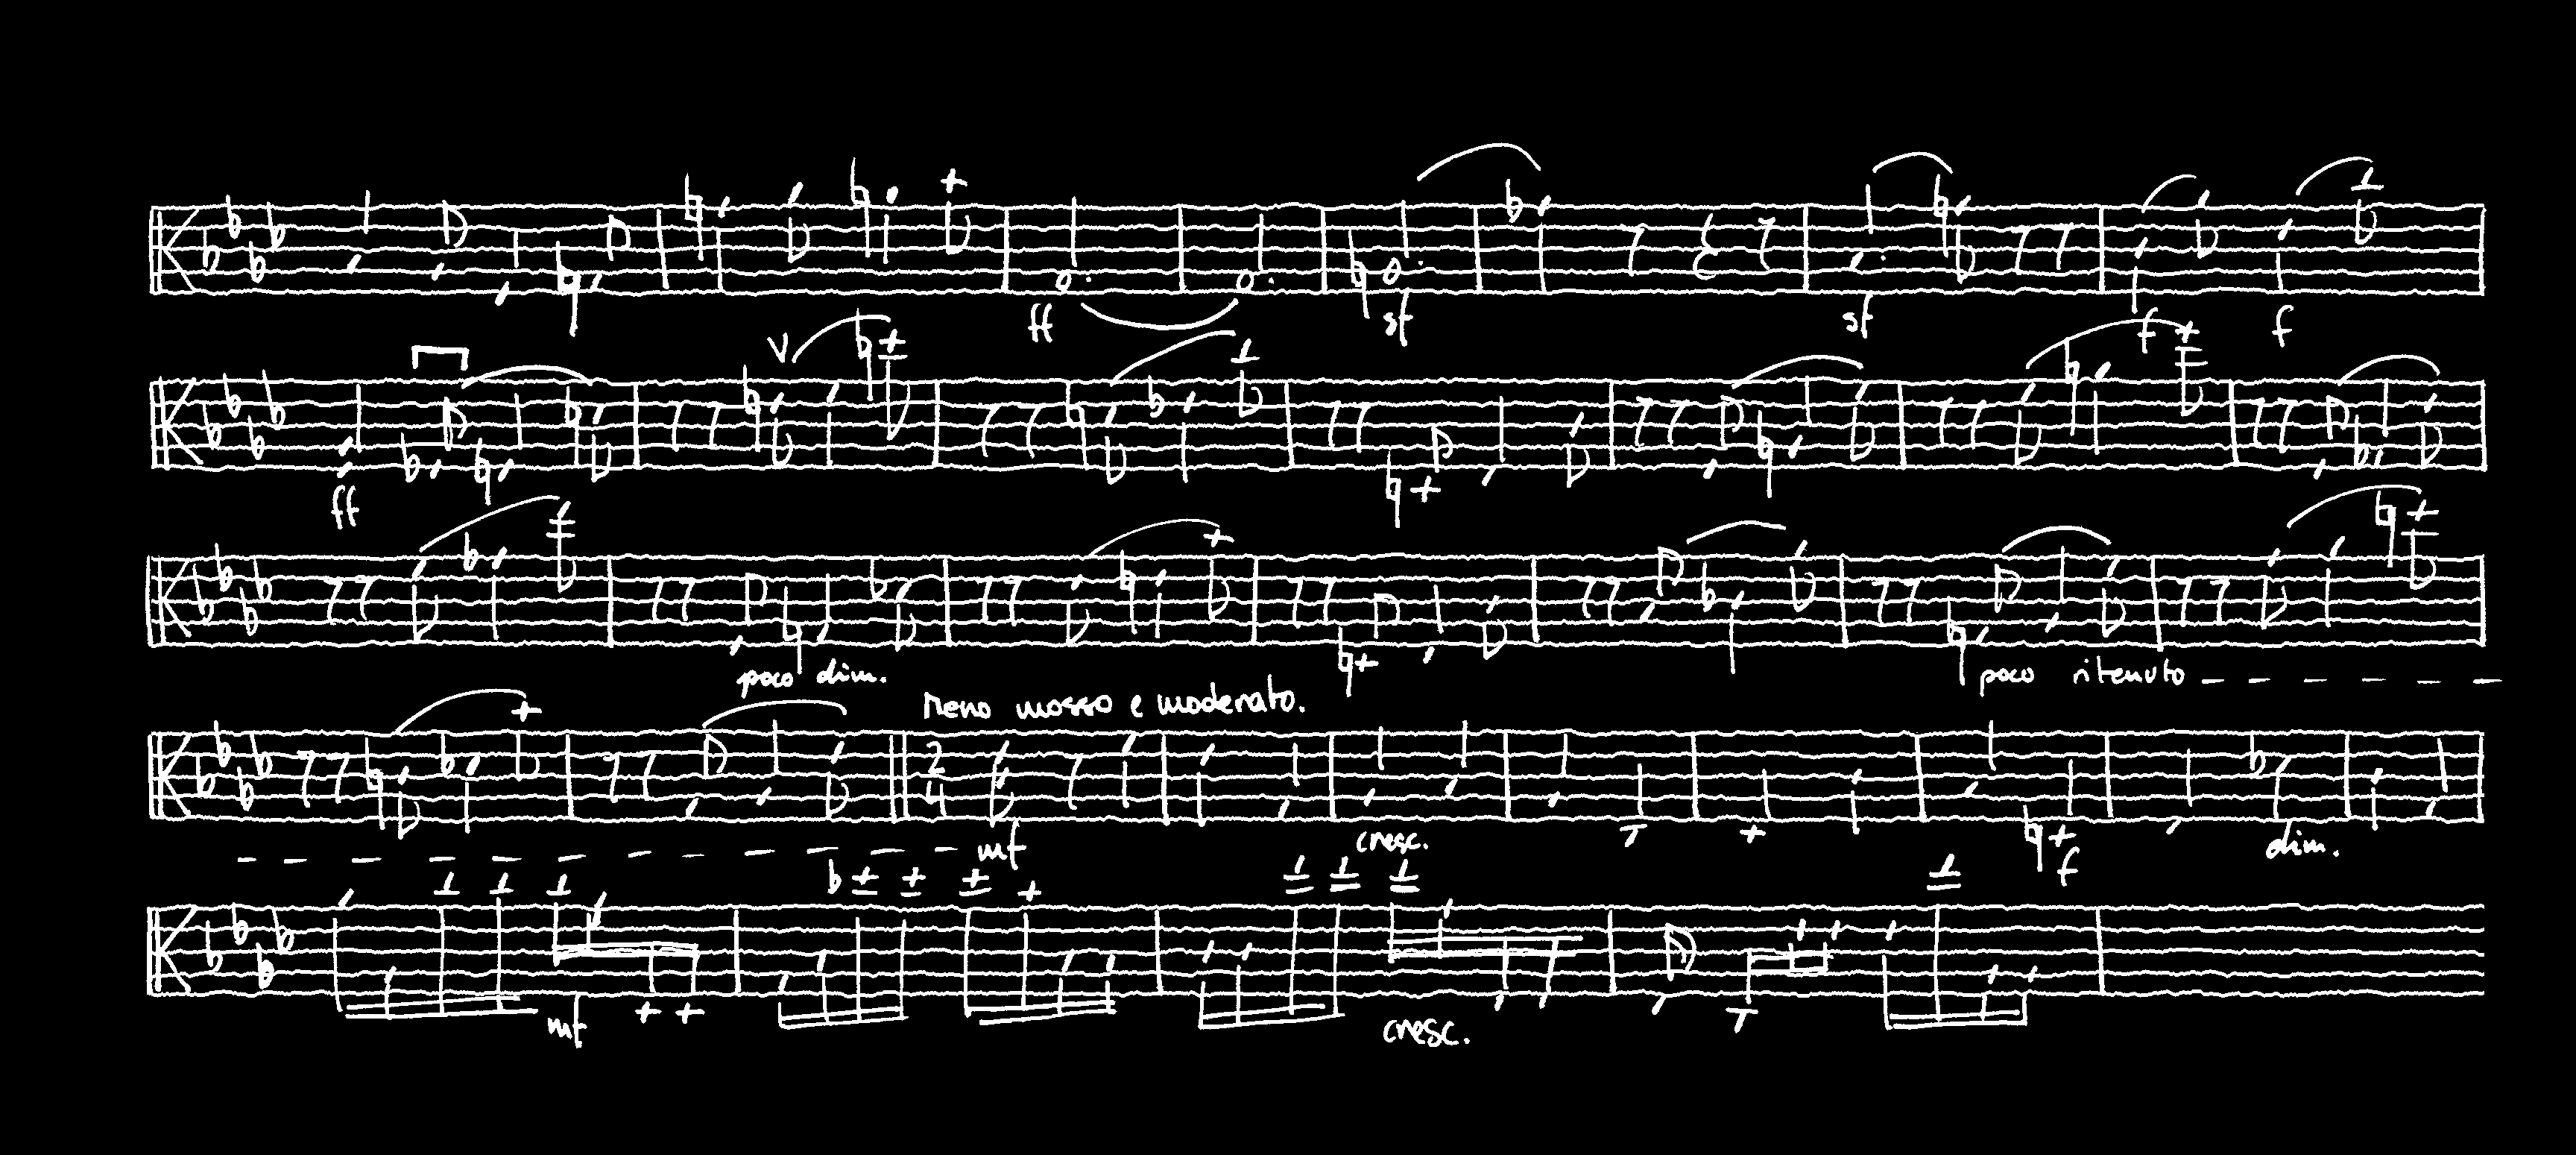 ff sf sf f f
V
ff
poco dim. poco ritenuto
Meno mosso e moderato.
2 4
mf cresc. f dim.
mf cresc.